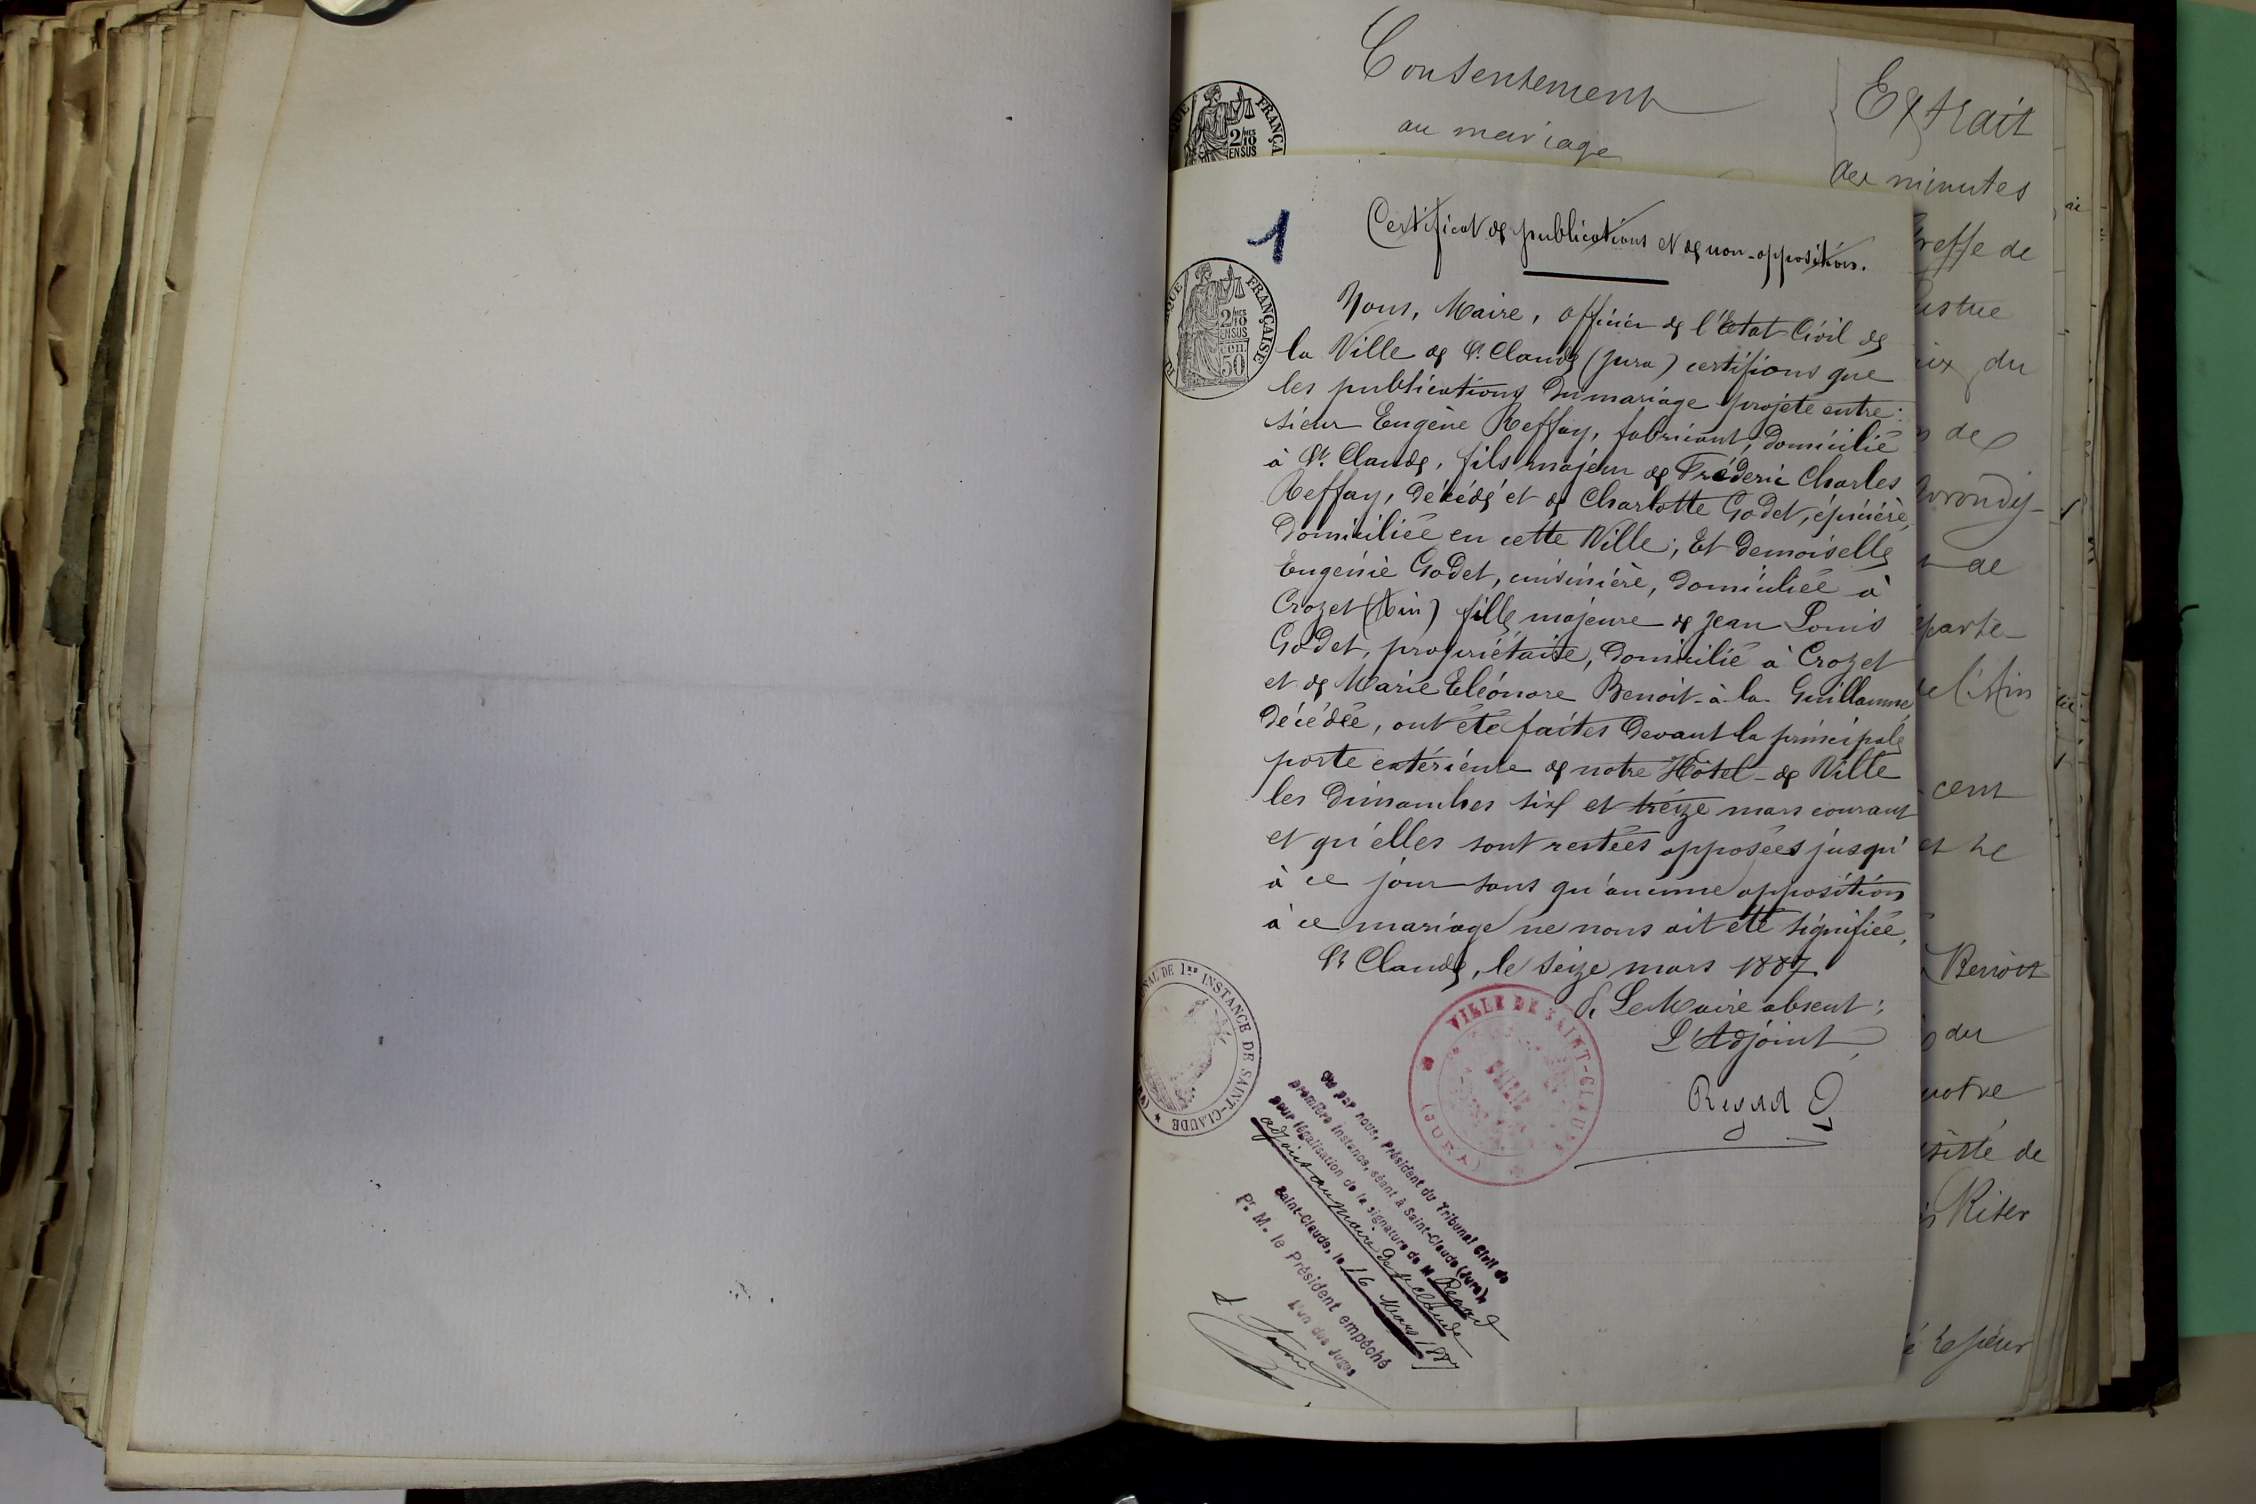 Consentement
au mariage
Extrait
des minutes
greffe de
1
Certificat de publications et de non-opposition.
FRANÇAISE
2/10
EN SUS
50
Nous, Maire, officier de l'Etat-Civil de
la Ville de St. Claude (Jura) certifions que
les publications du mariage projeté entre:
sieur Eugène Reffay, fabricant, domicilié
à St. Claude, fils majeur de Fréderic Charles
Reffay, décédé et de Charlotte Godet, épicière,
domiciliée en cette Ville; Et demoiselle
Eugénie Godet, cuisinière, domiciliée à
Crozet (Ain) fille majeure de Jean Louis
Godet, propriétaire, domicilié à Crozet
et de Marie Eléonore Benoit-à-la-Guillaume,
décédée, ont été faites devant la principale
porte extérieure de notre Hôtel-de-Ville
les dimanches six et treize mars courant
et qu'elles sont restées apposées jusqu'
à ce jour sans qu'aucune opposition
à ce mariage ne nous ait été signifiée.
St Claude, le seize mars 1887
P. Le Maire absent:
L'Adjoint,
Regad
VILLE DE SAINT-CLAUDE
(JURA)
DE 1re INSTANCE DE SAINT-CLAUDE
Vu par nous, Président du Tribunal Civil de
première instance, séant à Saint-Claude (Jura),
pour légalisation de la signature de M Regad
adjoint au maire de St Claude
Saint-Claude, le 16 Mars 1887
Pr. M. le Président empêché
L'un des Juges
du
de
de
de l'Ain
cent
et le
Benoit
du
notre
de
Riter